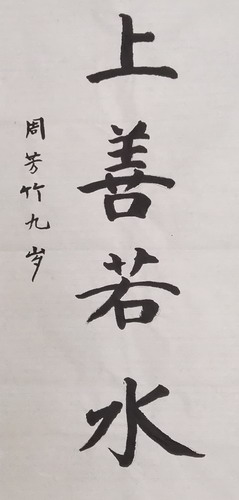 上善若水
周芳竹九岁